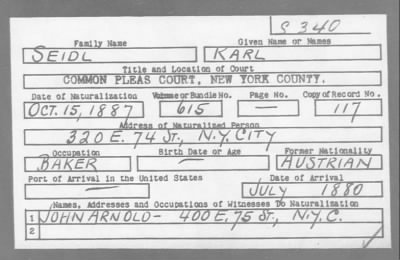 S 340
Family Name Given Name or Names
SEIDL KARL
Title and Location of Court
COMMON PLEAS COURT, NEW YORK COUNTY.
Date of Naturalization Volume or Bundle No. Page No. Copy of Record No.
OCT. 15, 1887 615 — 117
Address of Naturalized Person
320 E. 74 St., N.Y. CITY
Occupation Birth Date or Age Former Nationality
BAKER — AUSTRIAN
Port of Arrival in the United States Date of Arrival
— JULY 1880
Names, Addresses and Occupations of Witnesses To Naturalization
1 JOHN ARNOLD - 400 E, 75 St., N.Y.C.
2